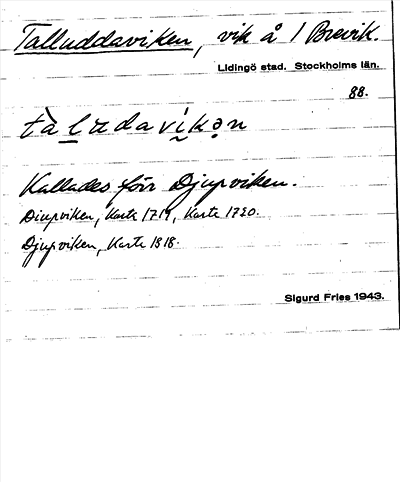 Talluddaviken, vik å 1 Brevik.
Lidingö stad. Stockholms län.
88.
tàludavikən
Kallades förr Djupviken.
Diupviken, Karta 1719, Karta 1720.
Djupviken, Karta 1818.
Sigurd Fries 1943.